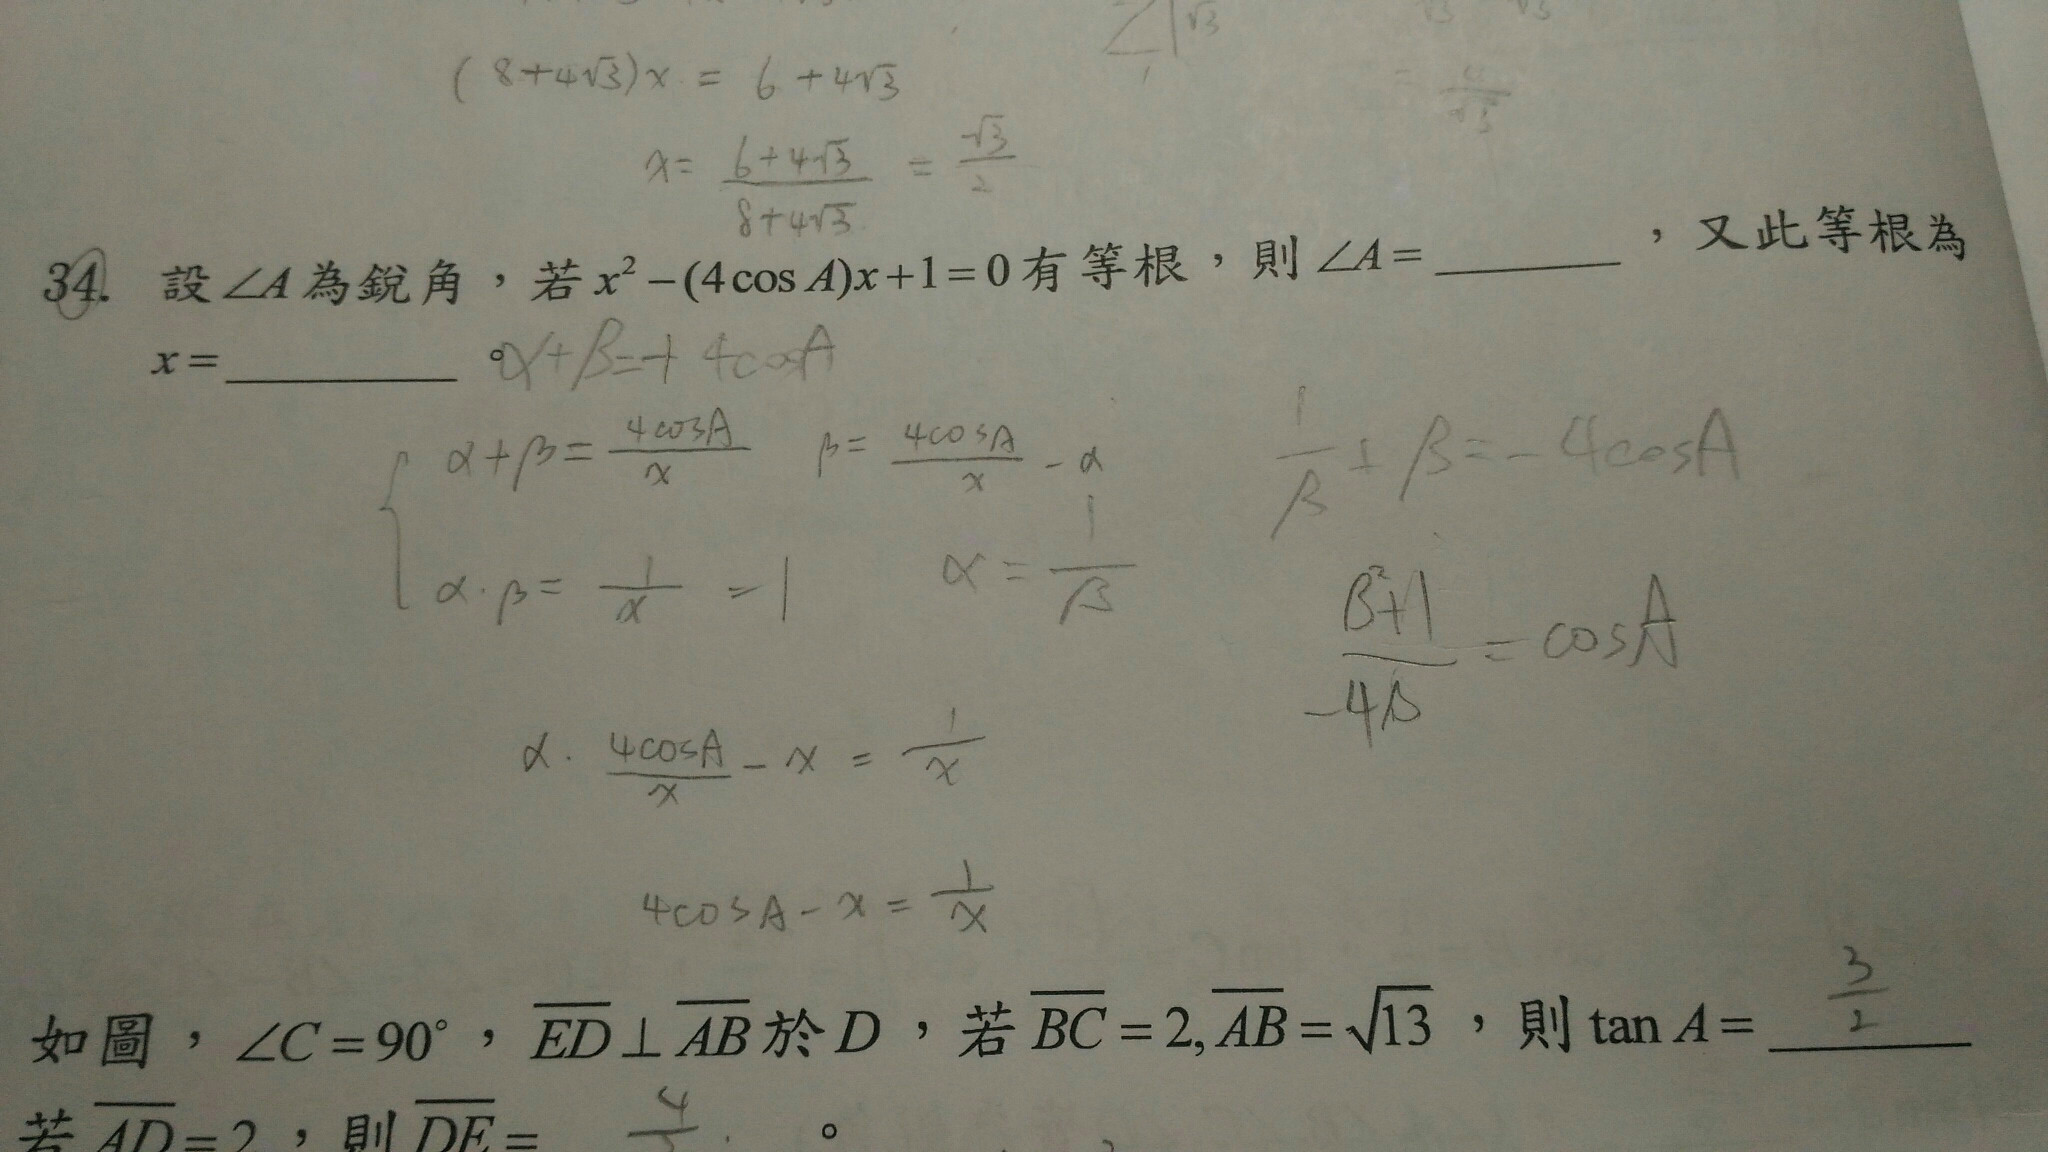 (8+4√3)x = 6+4√3
x = (6+4√3)/(8+4√3) = √3/2
34. 設∠A為銳角，若x²-(4cos A)x+1=0有等根，則∠A=______，又此等根為
x=______。α+β=+4cosA
α+β=4cosA/x β=4cosA/x-α 1/β+β=-4cosA
α·β=1/x=1 α=1/β
(β²+1)/(-4β)=cosA
α·4cosA/x-x=1/x
4cosA-x=1/x
如圖，∠C=90°，ED⊥AB於D，若BC=2, AB=√13，則tan A=3/2
若AD=2，則DE= 。